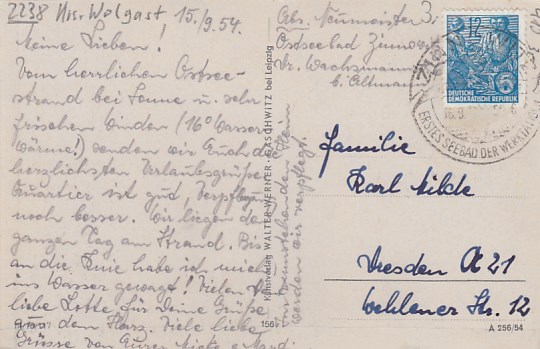 2238 Krs. Wolgast 15./9.54.
Meine Lieben!
Vom herrlichen Ostsee-
strand bei Sonne u. sehr
frischen Winden (16° Wasser
Wärme!) senden wir Euch die
herzlichsten Urlaubsgrüße
Quartier ist gut, Verpflegung
noch besser. Wir liegen den
ganzen Tag am Strand. Bis
an die Knie habe ich mich
ins Wasser gewagt! Vielen
liebe Lotte für Deine Grüße
aus dem Harz. Viele liebe
Grüsse von Euren
Im umstehenden Heim
werden wir verpflegt.
Kunstverlag WALTER WERNER · GASCHWITZ bei Leipzig
156
Abs. Neumeister
Ostseebad Zinnowitz
Dr. Wachsmann
b. Altmann
12
DEUTSCHE
DEMOKRATISCHE REPUBLIK
6
16.9
ERSTES SEEBAD DER WERKTÄTIGEN
Familie
Karl Milde
Dresden A 21
Wehlener Str. 12
A 256/54